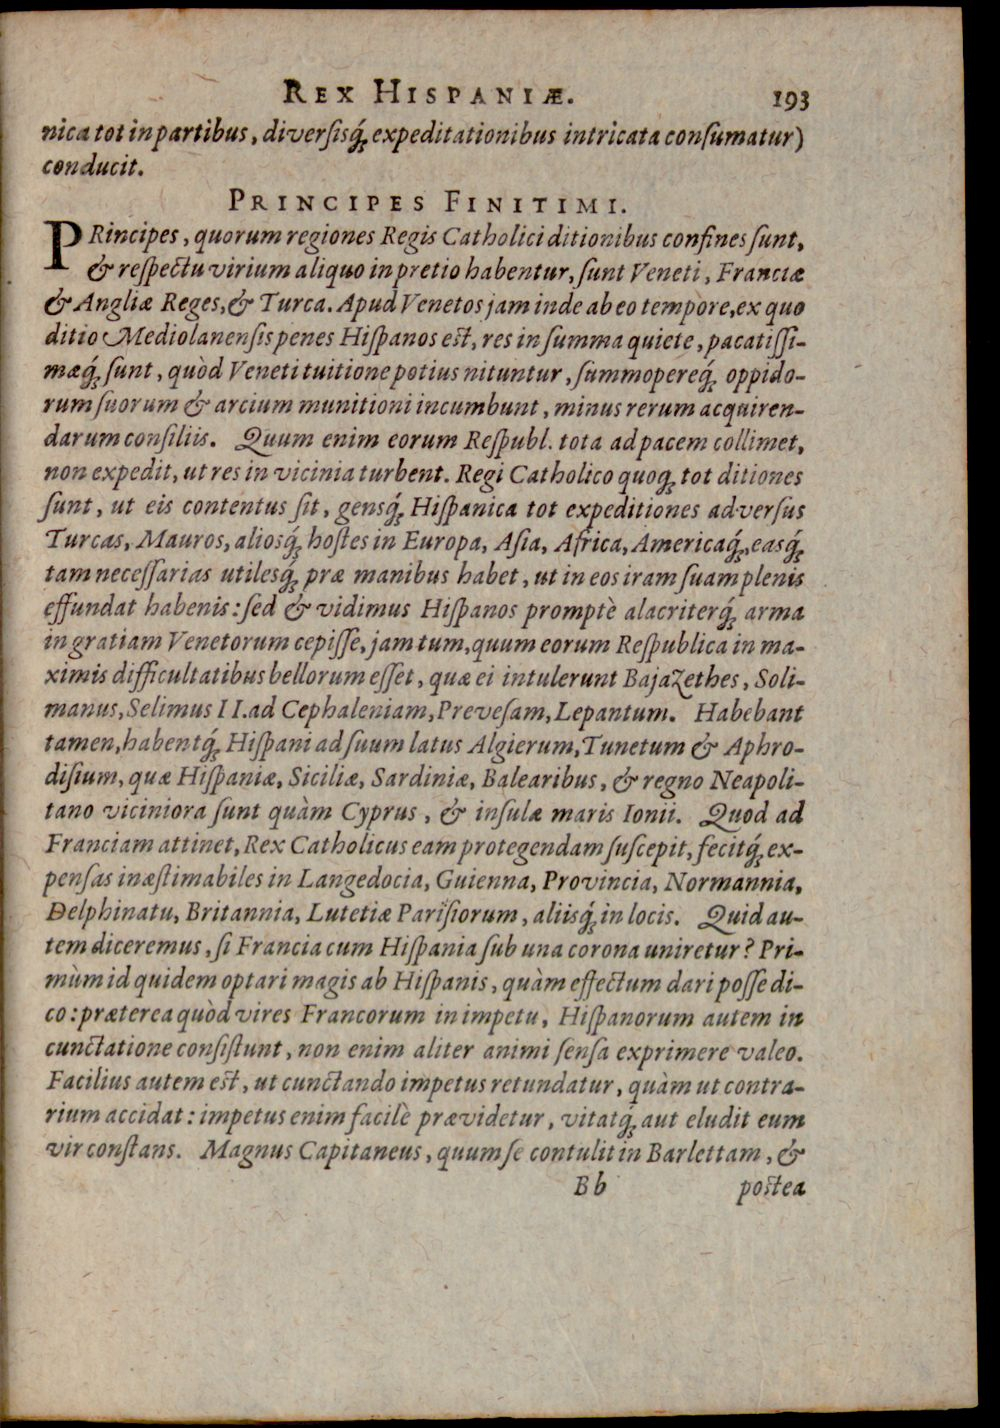 REX HISPANIÆ. 193
nica tot in partibus, diversisq́ꝫ expeditationibus intricata consumatur)
conducit.
PRINCIPES FINITIMI.
PRincipes, quorum regiones Regis Catholici ditionibus confines sunt,
& respectu virium aliquo in pretio habentur, sunt Veneti, Franciæ
& Angliæ Reges, & Turca. Apud Venetos jam inde ab eo tempore, ex quo
ditio Mediolanensis penes Hispanos est, res in summa quiete, pacatissi-
mæq́ꝫ sunt, quòd Veneti tuitione potius nituntur, summopereq́ꝫ oppido-
rum suorum & arcium munitioni incumbunt, minus rerum acquiren-
darum consiliis. Quum enim eorum Respubl. tota ad pacem collimet,
non expedit, ut res in vicinia turbent. Regi Catholico quoqꝫ tot ditiones
sunt, ut eis contentus sit, gensq́ꝫ Hispanica tot expeditiones adversus
Turcas, Mauros, aliosq́ꝫ hostes in Europa, Asia, Africa, Americaq́ꝫ, easq́ꝫ
tam necessarias utilesq́ꝫ præ manibus habet, ut in eos iram suam plenis
effundat habenis: sed & vidimus Hispanos promptè alacriterq́ꝫ arma
in gratiam Venetorum cepisse, jam tum, quum eorum Respublica in ma-
ximis difficultatibus bellorum esset, quæ ei intulerunt Bajazethes, Soli-
manus, Selimus II. ad Cephaleniam, Prevesam, Lepantum. Habebant
tamen, habentq́ꝫ Hispani ad suum latus Algierum, Tunetum & Aphro-
disium, quæ Hispaniæ, Siciliæ, Sardiniæ, Balearibus, & regno Neapoli-
tano viciniora sunt quàm Cyprus, & insulæ maris Ionii. Quod ad
Franciam attinet, Rex Catholicus eam protegendam suscepit, fecitq́ꝫ ex-
pensas inæstimabiles in Langedocia, Guienna, Provincia, Normannia,
Delphinatu, Britannia, Lutetiæ Parisiorum, aliisq́ꝫ in locis. Quid au-
tem diceremus, si Francia cum Hispania sub una corona uniretur? Pri-
mùm id quidem optari magis ab Hispanis, quàm effectum dari posse di-
co: præterea quòd vires Francorum in impetu, Hispanorum autem in
cunctatione consistunt, non enim aliter animi sensa exprimere valeo.
Facilius autem est, ut cunctando impetus retundatur, quàm ut contra-
rium accidat: impetus enim facilè prævidetur, vitatq́ꝫ aut eludit eum
vir constans. Magnus Capitaneus, quum se contulit in Barlettam, &
Bb postea